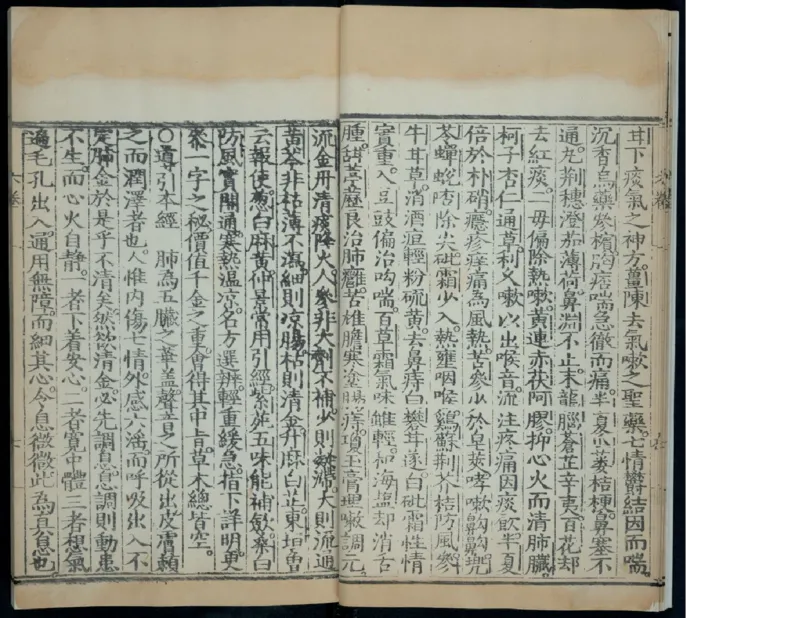 耳下痰氣之神方。薑陳去氣嗽之聖藥。七情欝結因而喘。
沉香烏藥參檳。胸痞喘急徹而痛。半夏瓜蔞桔梗。鼻塞不
通。尤荆穗澄茄薄荷。鼻淵不止。末龍腦蒼芷辛夷。百花却
去紅痰。二母偏除熱嗽。黄連赤茯阿膠。抑心火而清肺臟。
柯子杏仁通草。利久嗽以出喉音。流注疼痛因痰飲。半夏
倍於朴硝。癮疹痒痛為風熱。苦參少於皂莢。哮嗽齁齁。兜
苓蟬蛻杏。除尖砒霜少入。熱壅咽喉。鷄蘇荆芥桔防風參
牛耳草。消酒疸輕粉硫黄。去鼻痔白礬甘遂。白砒霜性情
實重。入豆豉偏治呴喘。百草霜氣味雖輕。和海塩却消舌
腫。甜葶藶良治肺癰。苦雄膽寒塗腸痔。瓊玉膏理嗽調元。
流金丹清痰降火。人參非大劑不補。少則凝滯。大則流通
黄芩非枯薄不瀉。細則凉腸。枯則清金。升麻白芷。東垣曽
云報使。葱白麻黄。仲景常用引經。紫菀五味能補斂。桑白
防風實開通。寒熱温凉。名方選辨。輕重緩急。指下詳明。更
參一字之秘。價值千金之重。會得其中肯。草木總皆空。
○導引本經　肺為五臓之華蓋。聲音之所從出。皮膚賴
之而潤澤者也。人惟内傷七情。外感六淫。而呼吸出入不
定。肺金於是乎不清矣。然欲清金。必先調息。息調則動患
不生。而心火自静。一者下着安心。二者寛中體。三者想氣
遍毛孔出入。通用無障。而細其心。令息微微。此為真息也。